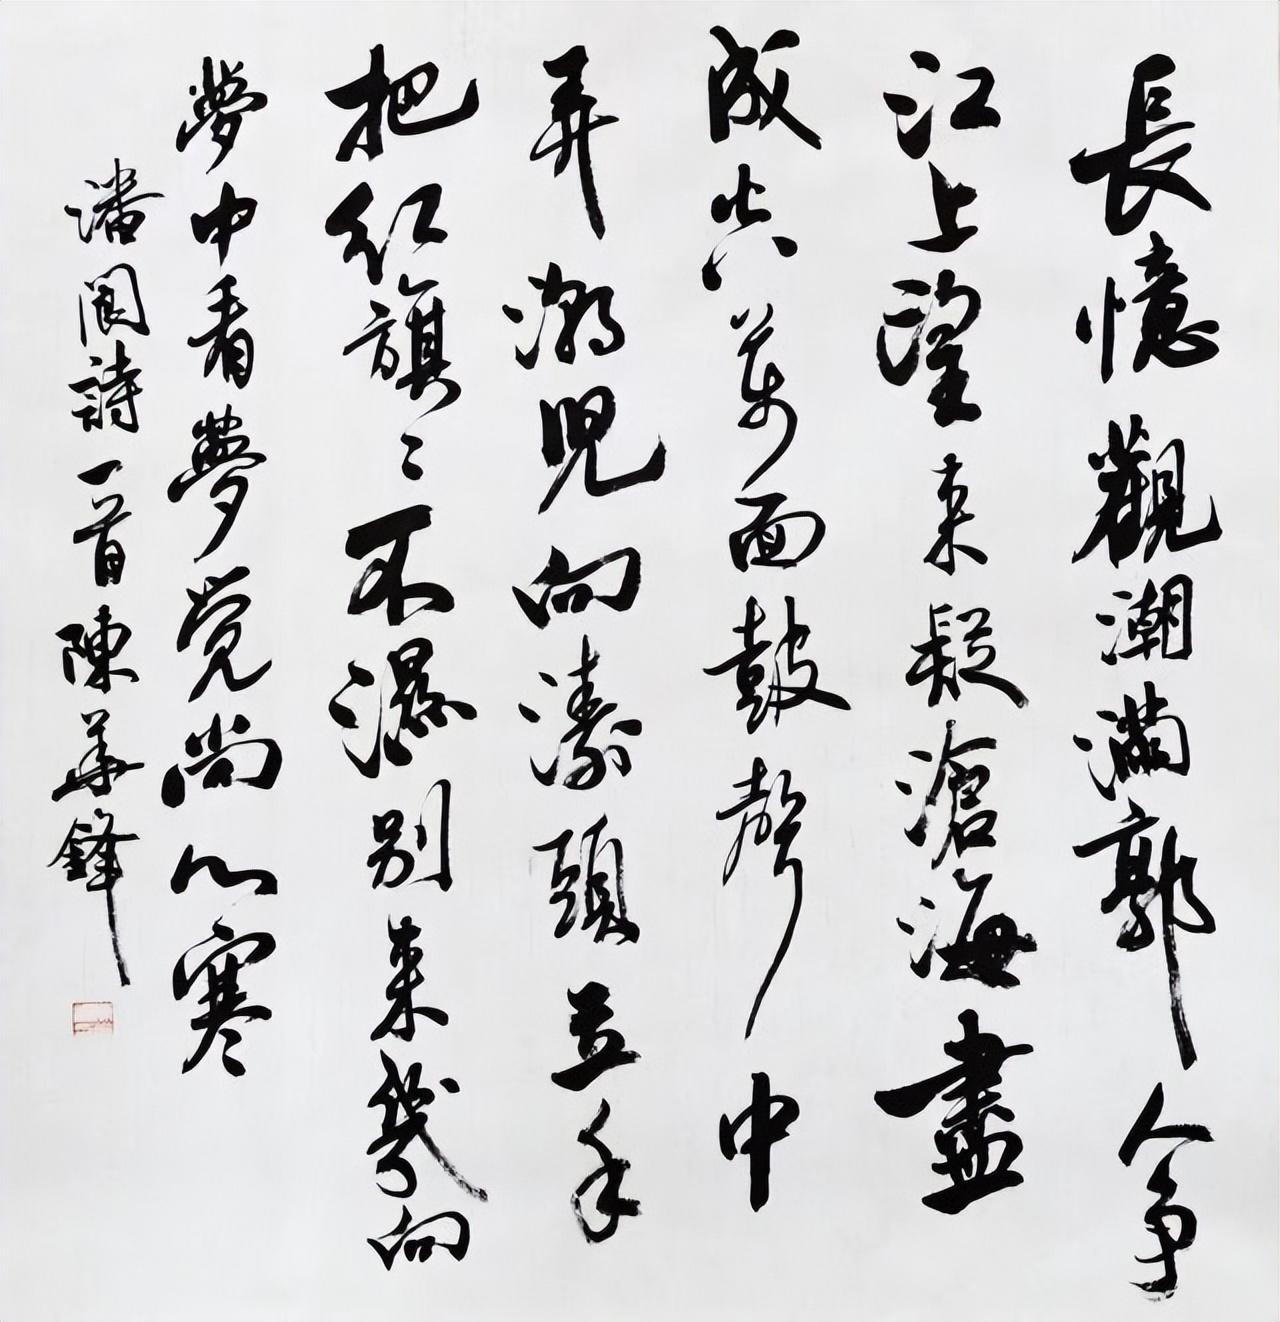 長憶觀潮滿郭人爭
江上望來疑滄海盡
成空萬面鼓聲中
弄潮兒向濤頭立手
把紅旗〻不濕別來幾向
夢中看夢覺尚心寒
潘閬詩一首陳華鋒